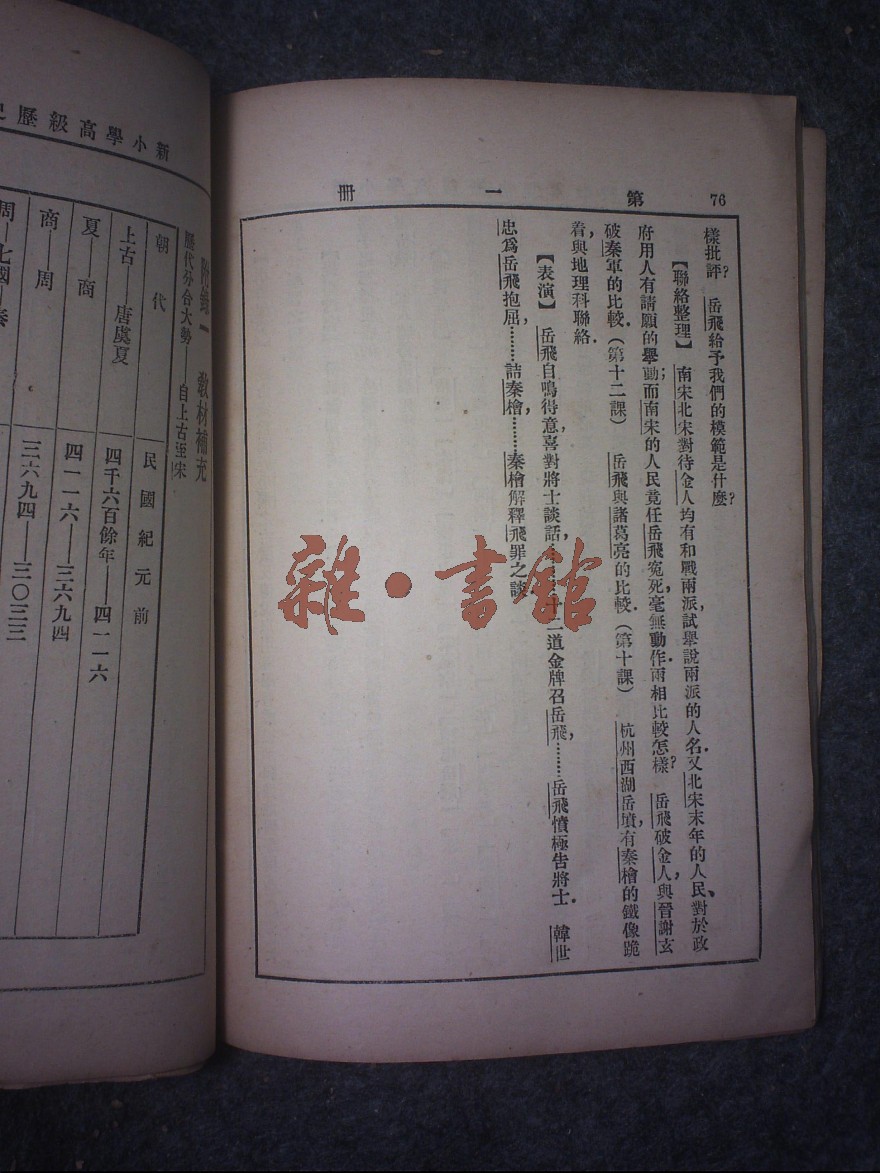 76
第一冊
樣批評? 岳飛給予我們的模範是什麼?
【聯絡整理】 南宋北宋對待金人均有和戰兩派,試舉說兩派的人名.又北宋末年的人民,對於政
府用人有請願的舉動;而南宋的人民竟任岳飛冤死,毫無動作.兩相比較怎樣? 岳飛破金人,與晉謝玄
破秦軍的比較.(第十二課) 岳飛與諸葛亮的比較.(第十課) 杭州西湖岳墳,有秦檜的鐵像跪
着,與地理科聯絡.
【表演】 岳飛自鳴得意,喜對將士談話,二道金牌召岳飛,………岳飛憤極告將士. 韓世
忠爲岳飛抱屈………詰秦檜,………秦檜解釋飛罪之談
新小學高級歷
附錄一 教材補充
歷代分合大勢 自上古至宋
朝代 民國紀元前
上古—唐虞夏 四千六百餘年—四一一六
夏—商 四一一六—三六九四
商—周 三六九四—三〇三三
周—七國—秦
雜·書館